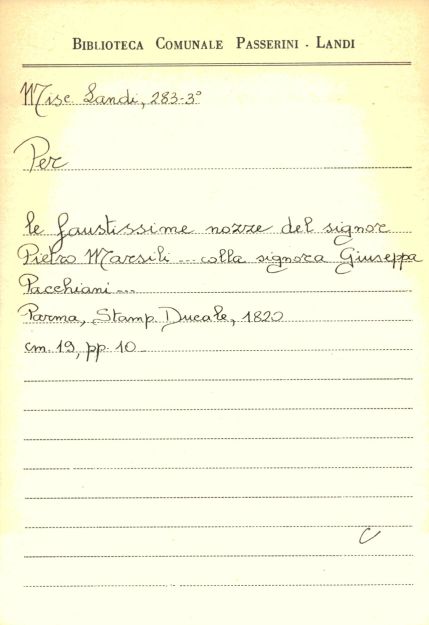 BIBLIOTECA COMUNALE PASSERINI - LANDI
Misc Landi, 283-3°
Per
le faustissime nozze del signor
Pietro Marsili ... colla signora Giuseppa
Pacchiani ...
Parma, Stamp. Ducale, 1820
cm. 19, pp. 10
C